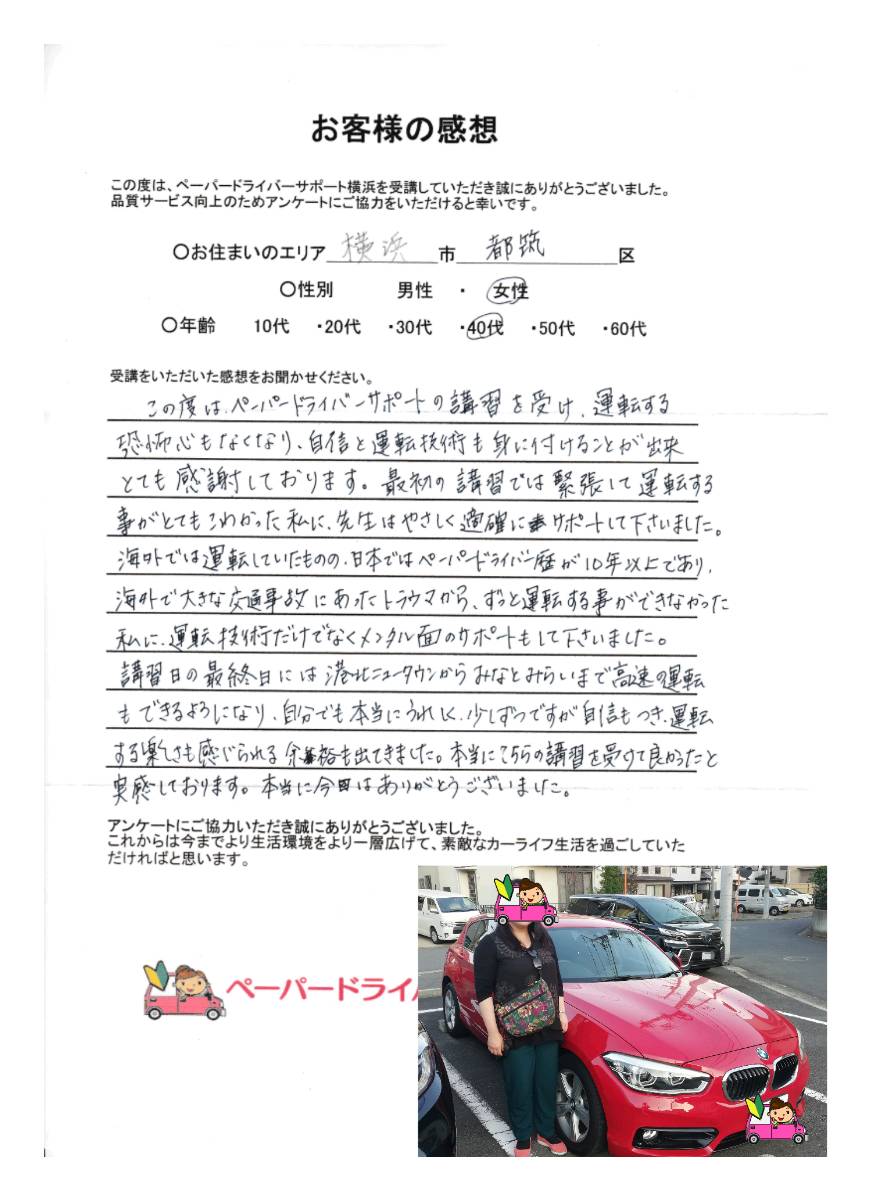 お客様の感想
この度は、ペーパードライバーサポート横浜を受講していただき誠にありがとうございました。
品質サービス向上のためアンケートにご協力をいただけると幸いです。
〇お住まいのエリア 横浜 市 都筑 区
〇性別 男性 ・ 女性
〇年齢 10代 ・20代 ・30代 ・40代 ・50代 ・60代
受講をいただいた感想をお聞かせください。
この度は、ペーパードライバーサポートの講習を受け、運転する
恐怖心もなくなり、自信と運転技術も身に付けることが出来
とても感謝しております。最初の講習では緊張して運転する
事がとてもこわかった私に、先生はやさしく適確にサポートして下さいました。
海外では運転していたものの、日本ではペーパードライバー歴が10年以上であり、
海外で大きな交通事故にあったトラウマから、ずっと運転する事ができなかった
私に、運転技術だけでなくメンタル面のサポートもして下さいました。
講習日の最終日には港北ニュータウンからみなとみらいまで高速の運転
もできるようになり、自分でも本当にうれしく、少しずつですが自信もつき、運転
する楽しさも感じられる余裕も出てきました。本当にこちらの講習を受けて良かったと
実感しております。本当に今回はありがとうございました。
アンケートにご協力いただき誠にありがとうございました。
これからは今までより生活環境をより一層広げて、素敵なカーライフ生活を過ごしていた
だければと思います。
ペーパードライバ